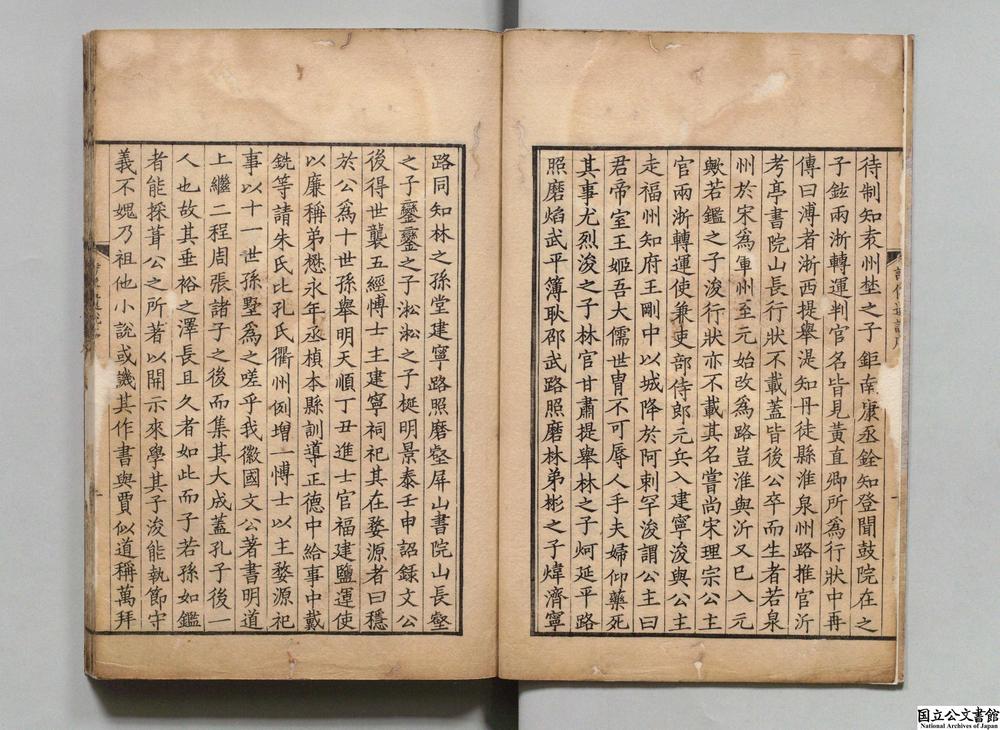 待制知袁州埜之子鉅南康丞銓知登聞鼓院在之
子鉉兩浙轉運判官名皆見黃直卿所為行狀中再
傳曰溥者浙西提舉湜知丹徒縣淮泉州路推官沂
考亭書院山長行狀不載蓋皆後公卒而生者若泉
州於宋爲軍州至元始改爲路豈淮與沂又巳入元
歟若鑑之子浚行狀亦不載其名嘗尚宋理宗公主
官兩浙轉運使兼吏部侍郎元兵入建寧浚與公主
走福州知府王剛中以城降於阿剌罕浚謂公主曰
君帝室王姬吾大儒世胄不可辱人手夫婦仰藥死
其事尤烈浚之子林官甘肅提舉林之子炣延平路
照磨焰武平簿耿邵武路照磨林弟彬之子煒濟寧
路同知林之孫堂建寧路照磨壑屏山書院山長壑
之子鑾鑾之子淞淞之子梴明景泰壬申詔録文公
後得世襲五經愽士主建寧祠祀其在婺源者曰穩
於公爲十世孫舉明天順丁丑進士官福建鹽運使
以廉稱弟懋永年丞楨本縣訓導正德中給事中戴
銑等請朱氏比孔氏衢州例增一愽士以主婺源祀
事以十一世孫墅爲之嗟乎我徽國文公著書明道
上繼二程周張諸子之後而集其大成蓋孔子後一
人也故其垂裕之澤長且久者如此而子若孫如鑑
者能採葺公之所著以開示來學其子浚能執節守
義不媿乃祖他小說或譏其作書與賈似道稱萬拜
国立公文書館
National Archives of Japan